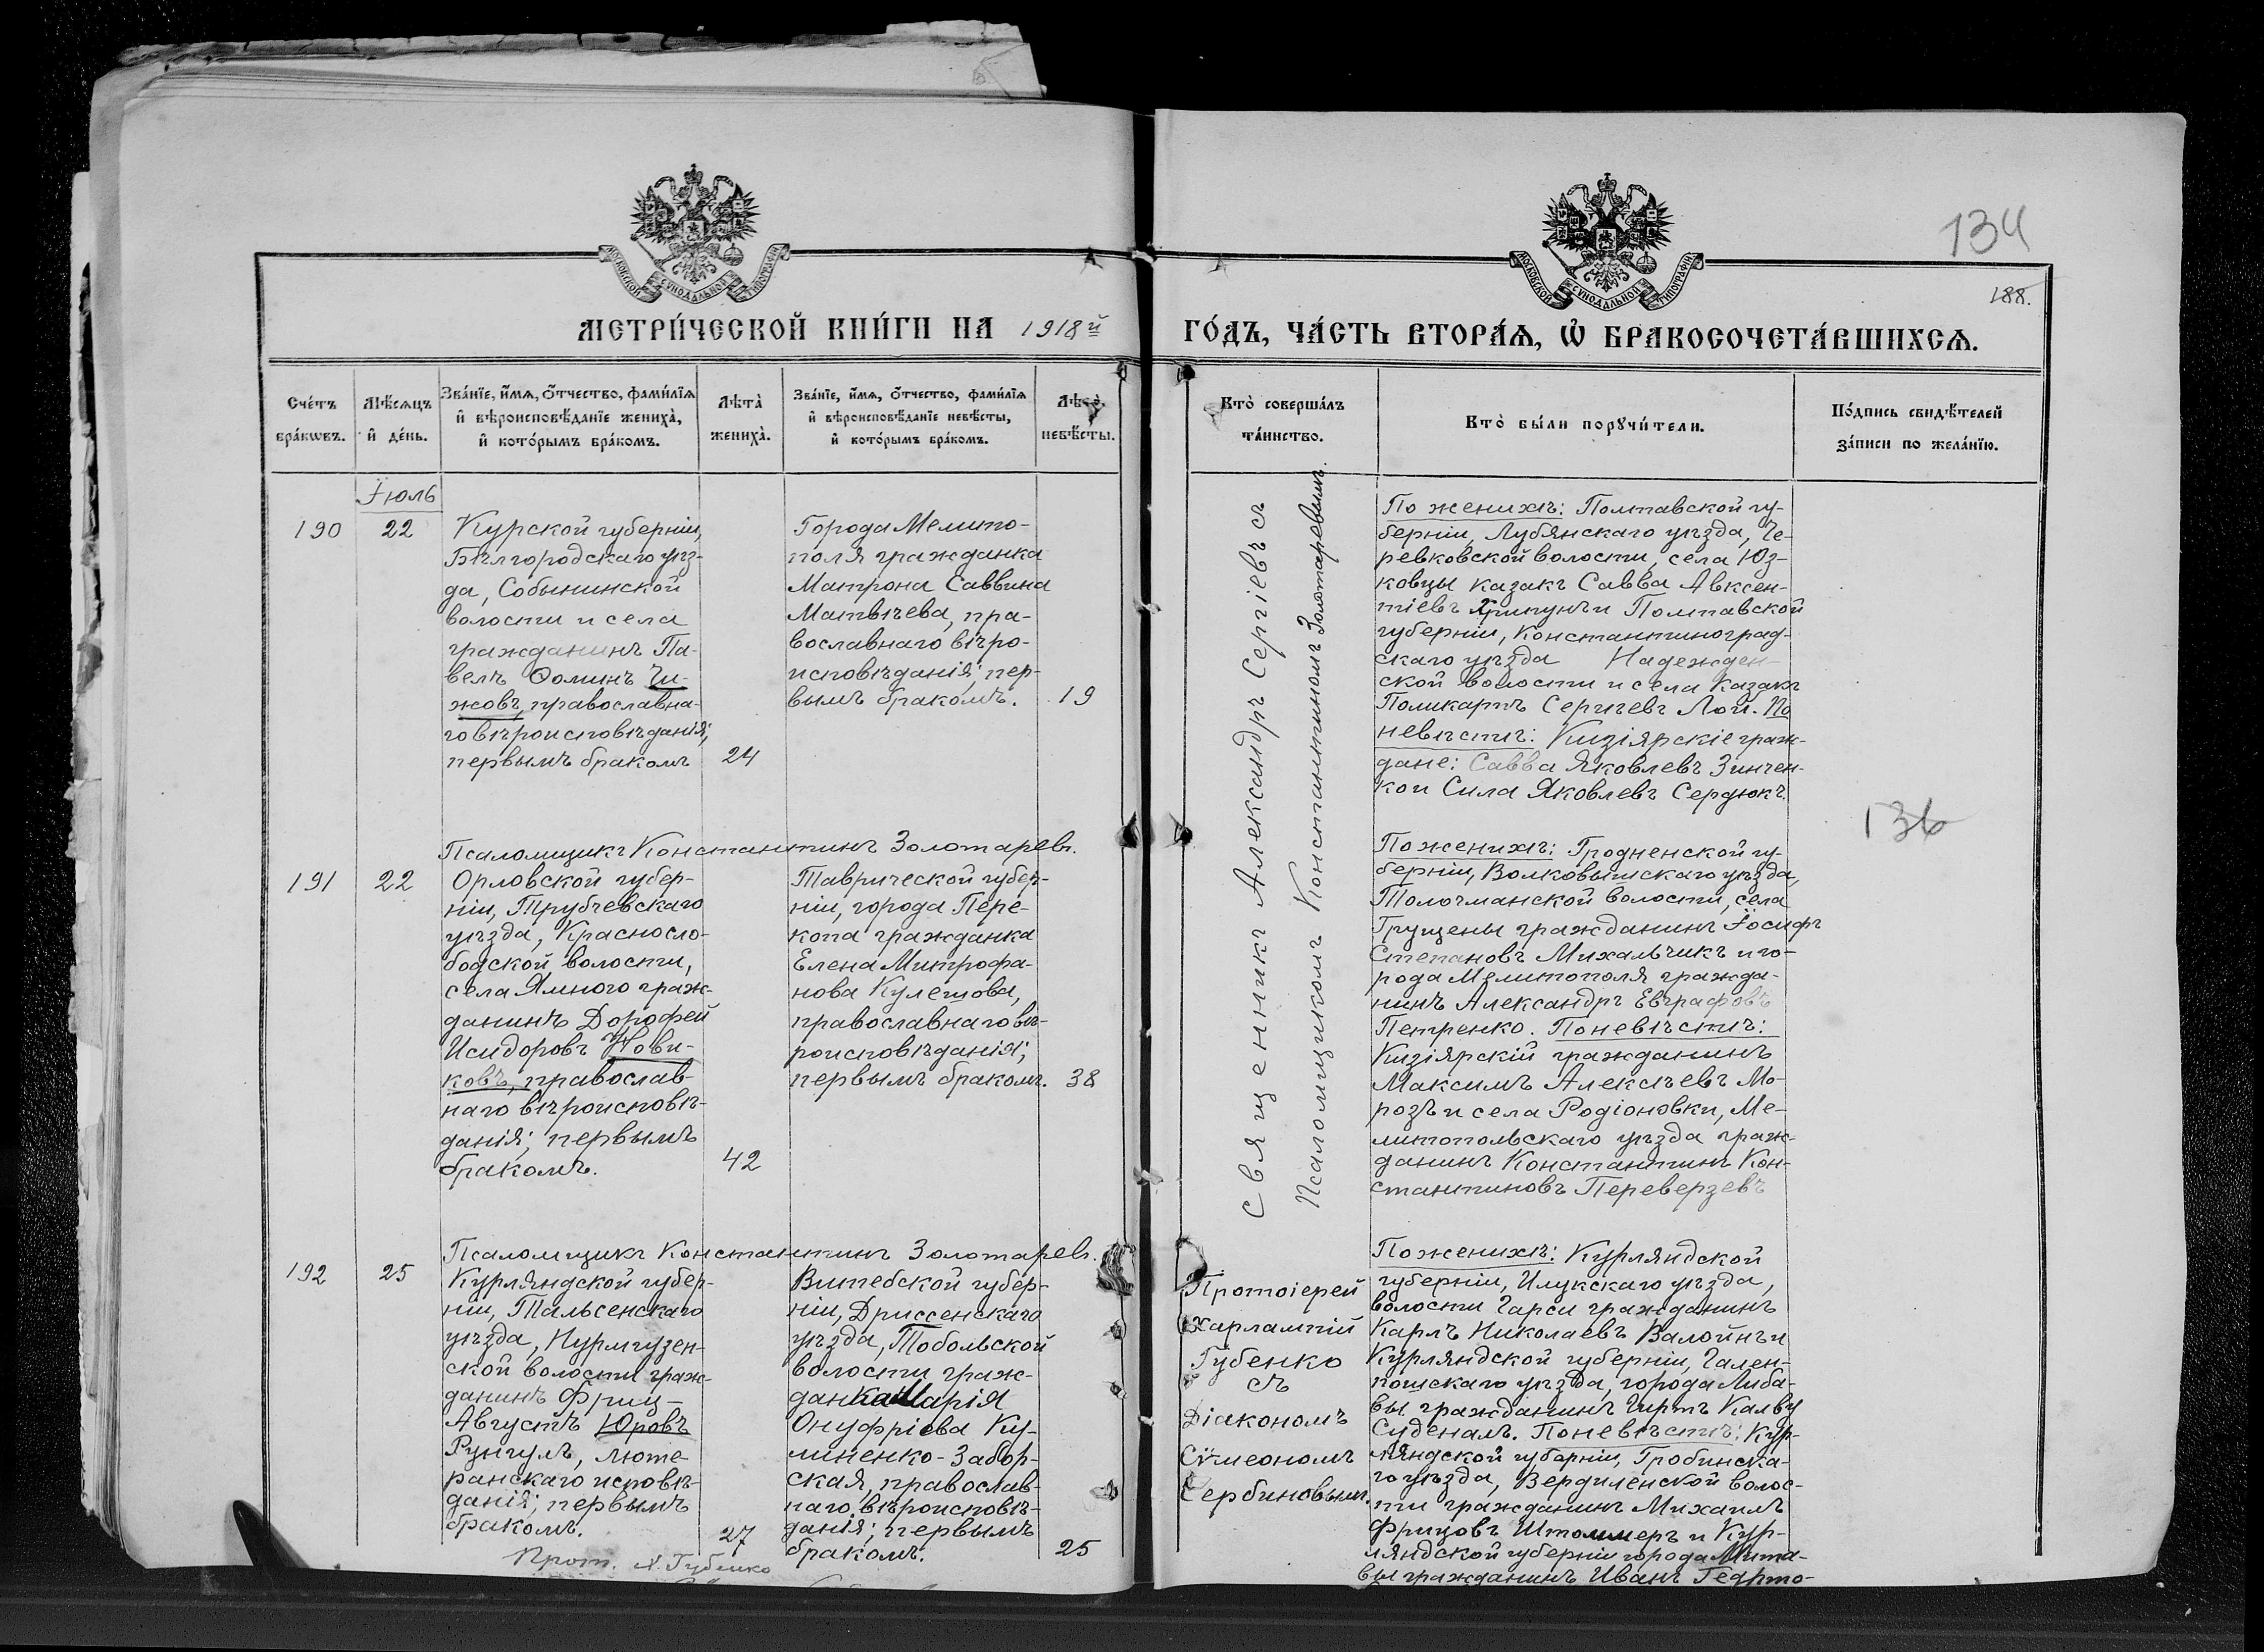 134
188.
МОСКОВСКОЙ СѴНОДАЛЬНОЙ ТИПОГРАФІИ
МОСКОВСКОЙ СѴНОДАЛЬНОЙ ТИПОГРАФІИ
МЕТРИ́ЧЕСКОЙ КНИ́ГИ НА 1918й
ГО́ДЪ, ЧА́СТЬ ВТОРА́Ѧ, Ѡ҆ БРАКОСОЧЕТА́ВШИХСѦ.
Сче́тъ
бра́кѡвъ.
Мѣ́сѧцъ
и҆ де́нь.
Зва́нїе, и҆́мѧ, ѻ҆́тчество, фами́лїѧ
и҆ вѣроисповѣ́данїе жениха̀,
и҆ кото́рымъ бра́комъ.
Лѣта̀
жениха̀.
Зва́нїе, и҆́мѧ, ѻ҆́тчество, фами́лїѧ
и҆ вѣроисповѣ́данїе невѣ́сты,
и҆ кото́рымъ бра́комъ.
Лѣта̀
невѣ́сты.
Кто̀ соверша́лъ
та́инство.
Кто̀ бы́ли порꙋчи́тели.
По́дпись свидѣ́телей
за́писи по жела́нїю.
Іюль
190
22
Курской губерніи,
Бѣлгородскаго уѣз-
да, Собынинской
волости и села
гражданинъ Па-
велъ Ѳоминъ Чи-
жовъ, православна-
го вѣроисповѣданія;
первымъ бракомъ
24
Города Мелито-
поля гражданка
Матрона Саввина
Матвѣева, пра-
вославнаго вѣро-
исповѣданія; пер-
вымъ бракомъ.
19
Священникъ Александръ Сергіевъ съ
Псаломщикомъ Константиномъ Золотаревымъ.
По женихѣ: Полтавской гу-
берніи, Лубянскаго уѣзда, Че-
ревковской волости, села Юз-
ковцы казакъ Савва Авксен-
тіевъ Хрипунъ и Полтавской
губерніи, Константиноград-
скаго уѣзда Надежден-
ской волости и села казакъ
Поликарпъ Сергѣевъ Лой. По
невѣстѣ: Кизіярскіе граж-
дане: Савва Яковлевъ Зинчен-
ко и Сила Яковлевъ Сердюкъ.
Псаломщикъ Константинъ Золотаревъ.
136
191
22
Орловской губер-
ніи, Трубчевскаго
уѣзда, Краснослο-
бодской волости,
села Ямного граж-
данинъ Дорофей
Исидоровъ Нови-
ковъ, православ-
наго вѣроисповѣ-
данія; первымъ
бракомъ.
42
Таврической губер-
ніи, города Пере-
копа гражданка
Елена Митрофа-
нова Кулешова,
православнаго вѣ-
роисповѣданія;
первымъ бракомъ.
38
По женихѣ: Гродненской гу-
берніи, Волковышскаго уѣзда,
Толочманской волости, села
Грущены гражданинъ Іосифъ
Степановъ Михальчикъ и го-
рода Мелитополя гражда-
нинъ Александръ Евграфовъ
Петренко. По невѣстѣ:
Кизіярскій гражданинъ
Максимъ Алексѣевъ Мо-
розъ и села Родіоновки, Ме-
литопольскаго уѣзда граж-
данинъ Константинъ Кон-
стантиновъ Переверзевъ
Псаломщикъ Константинъ Золотаревъ.
192
25
Курляндской губер-
ніи, Тальсенскаго
уѣзда, Нурмгузен-
ской волости граж-
данинъ Фриц-
Августъ Юровъ
Рунгулъ, люте-
ранскаго исповѣ-
данія; первымъ
бракомъ.
27
Витебской губер-
ніи, Дриссенскаго
уѣзда, Тобольской
волости граж-
данка Марія
Онуфріева Ку-
линенко-Забор-
ская, православ-
наго вѣроисповѣ-
данія; первымъ
бракомъ.
25
Протоіерей
Харлампій
Губенко
съ
Діакономъ
Сѵмеономъ
Сербиновымъ.
По женихѣ: Курляндской
губерніи, Илукскаго уѣзда,
волости Гарси гражданинъ
Карлъ Николаевъ Валойнъ и
Курляндской губерніи, Гален-
пошскаго уѣзда, города Либа-
вы гражданинъ Гиртъ Калву
Суденалъ. По невѣстѣ: Кур-
ляндской губерніи, Гробинска-
го уѣзда, Вердиленской волос-
ти гражданинъ Михаилъ
Фрицовъ Штоммеръ и Кур-
ляндской губерніи города Мита-
вы гражданинъ Иванъ Гедрто-
Прот. Х. Губенко